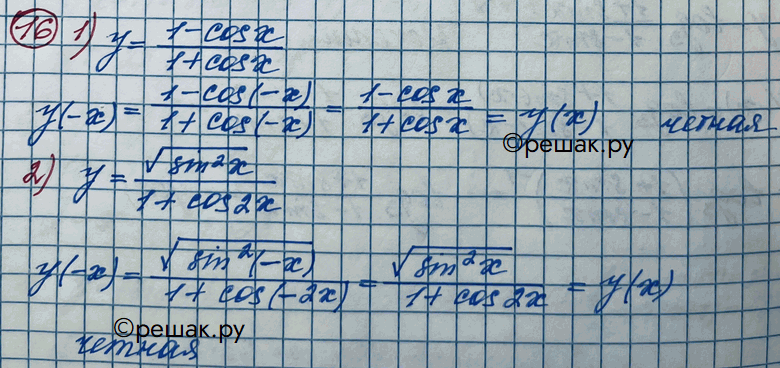 16 1) y = (1-cosx)/(1+cosx)
y(-x) = (1-cos(-x))/(1+cos(-x)) = (1-cosx)/(1+cosx) = y(x) четная
©решак.ру
2) y = √(sin²x)/(1+cos2x)
y(-x) = √(sin²(-x))/(1+cos(-2x)) = √(sin²x)/(1+cos2x) = y(x)
©решак.ру
четная